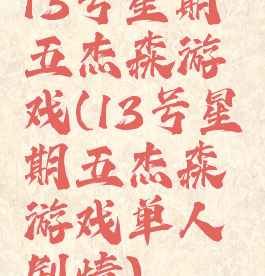 13号星期
五杰森游
戏(13号星
期五杰森
游戏单人
剧情)